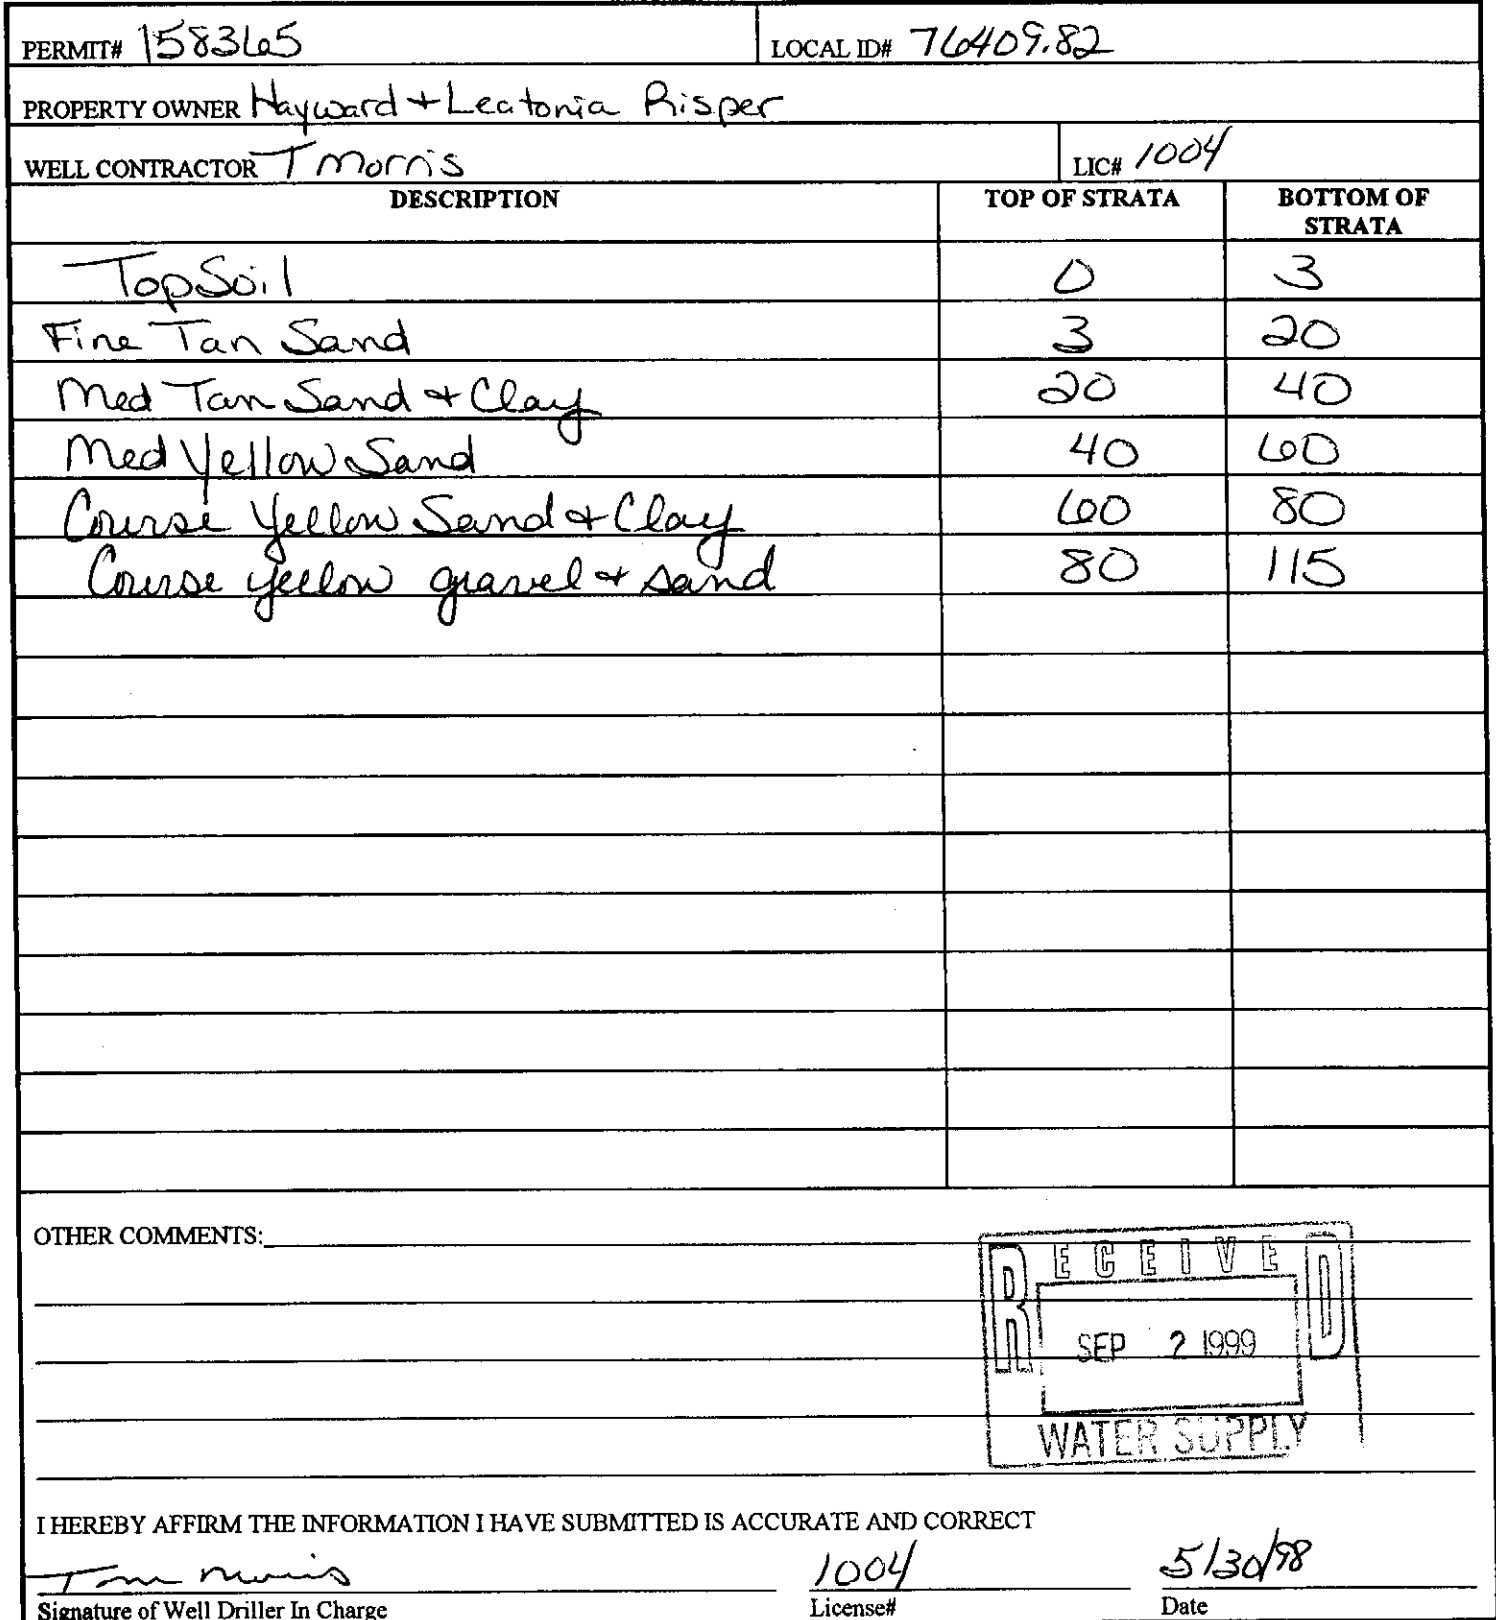 PERMIT# 158365 LOCAL ID# 76409.82
PROPERTY OWNER Hayward + Leatonia Risper
WELL CONTRACTOR T Morris LIC# 1004
DESCRIPTION TOP OF STRATA BOTTOM OF
STRATA
TopSoil 0 3
Fine Tan Sand 3 20
Med Tan Sand + Clay 20 40
Med Yellow Sand 40 60
Course Yellow Sand + Clay 60 80
Course yellow gravel + sand 80 115
OTHER COMMENTS:
RECEIVED
SEP 2 1999
WATER SUPPLY
I HEREBY AFFIRM THE INFORMATION I HAVE SUBMITTED IS ACCURATE AND CORRECT
Tom Morris 1004 5/30/98
Signature of Well Driller In Charge License# Date